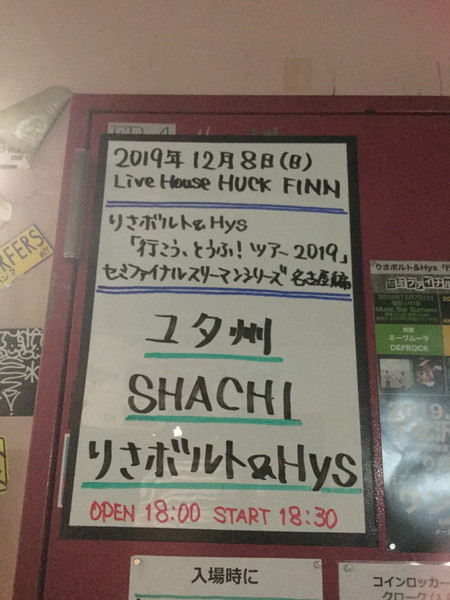 2019年12月8日(日)
Live House HUCK FINN
りさボルト&Hys
「行こう、とうふ!ツアー2019」
セミファイナルスリーマンシリーズ 名古屋編
ユタ州
SHACHI
りさボルト&Hys
OPEN 18:00 START 18:30
入場時に
コインロッカー
クローク
りさボルト&Hys
Music Bar
ミークムーラ
DEFROCK